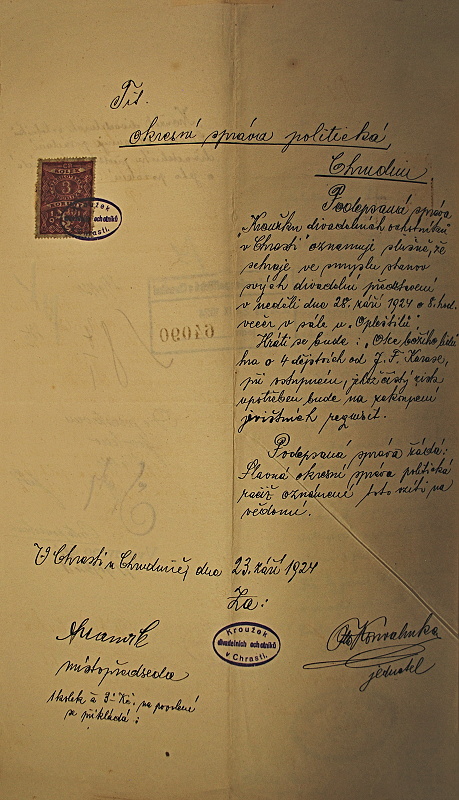 Tit.
okresní správa politická,
Chrudim.
KOLEK
3
Kroužek
divadelních ochotníků
v Chrasti.
Podepsaná správa
"Kroužku divadelních ochotníků
v Chrasti" oznamuje slušně, že
sehraje ve smyslu stanov
svých divadelní představení
v neděli dne 28. září 1924 o 8 hod.
večer v sále u "Opleštilů".
Hráti se bude: "Otce božího
hra o 4 dějstvích od J. F. Karase,
při vstupném, jehož čistý
upotřeben bude na zakoupení
jevištních requisit.
64090
Podepsaná správa žádá:
Slavná okresní správa politická
račiž oznámení toto vzíti na
vědomí.
V Chrasti u Chrudimě, dne 23. září 1924
Za:
Kroužek
divadelních ochotníků
v Chrasti.
místopředseda
jednatel
1 kolek à 3 Kč. na povolení
se přikládá: